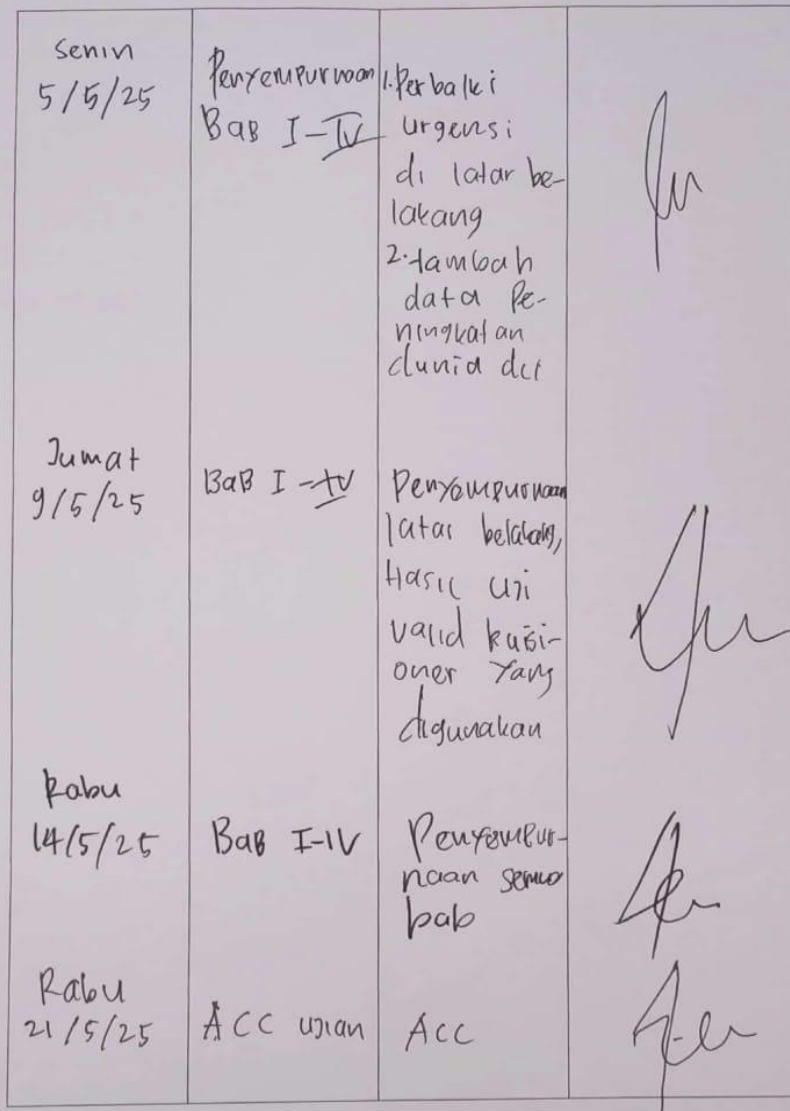 Senin
5/5/25
Penyempurnaan
Bab I-IV
1. Perbaiki
urgensi
di latar be-
lakang
2. tambah
data Pe-
ningkatan
dunia
Jumat
9/5/25
BaB I-IV
Penyempurnaan
latar belakang,
Hasil uji
valid kuisi-
oner Yang
digunakan
Rabu
14/5/25
BaB I-IV
Penyempur-
naan semua
bab
Rabu
21/5/25
ACC ujian
ACC